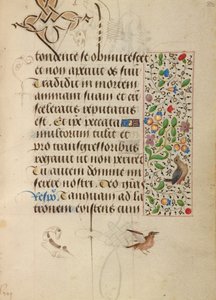 tondente se obmutescet
et non aperiet os suū
Tradidit in mortem
animam suam et cū
sceleratis reputatus
est. Et ipe peccata
multorum tulit et
pro transgressoribus
rogauit ut non periret
Tu autem domine mi
serere nostri. Deo
Tanquam ad la
tronem existis cum